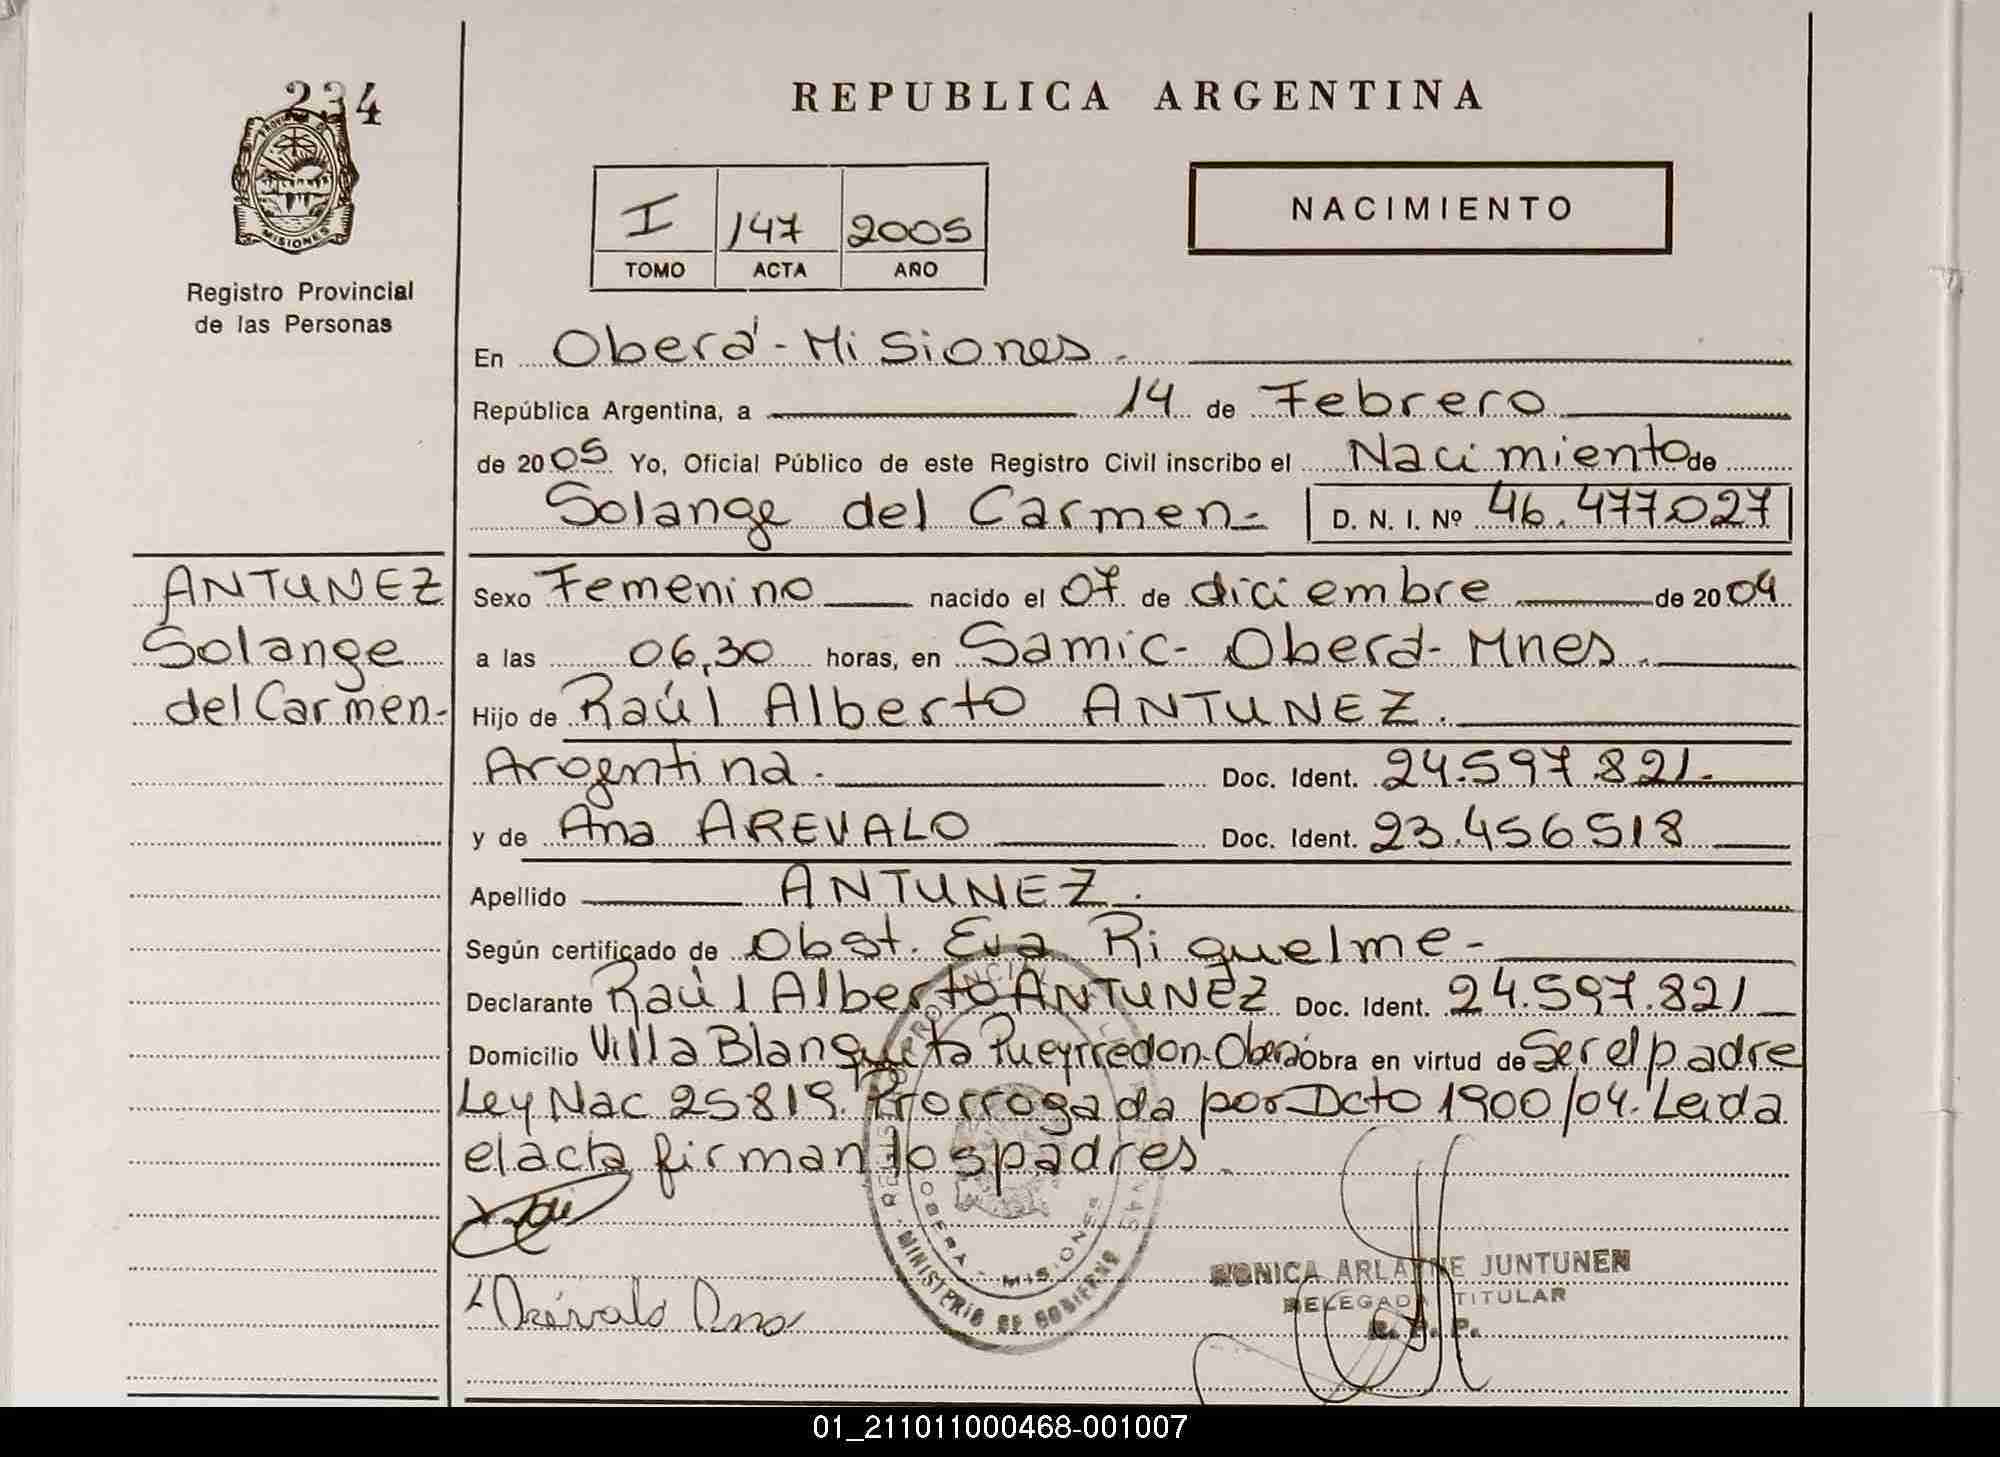 234
PROVINCIA DE
MISIONES
Registro Provincial
de las Personas
REPUBLICA ARGENTINA
I 147 2005
TOMO ACTA AÑO
NACIMIENTO
En Oberá - Misiones.
República Argentina, a 14 de Febrero
de 2005 Yo, Oficial Público de este Registro Civil inscribo el Nacimiento de
Solange del Carmen- D. N. I. Nº 46.477.027
ANTUNEZ
Solange
del Carmen-
Sexo Femenino nacido el 07 de diciembre de 2004
a las 06,30 horas, en Samic- Oberá- Mnes.
Hijo de Raúl Alberto ANTUNEZ.
Argentina. Doc. Ident. 24.597.821.
y de Ana AREVALO Doc. Ident. 23.456518
Apellido ANTUNEZ.
Según certificado de Obst. Eva Riquelme-
Declarante Raúl Alberto ANTUNEZ Doc. Ident. 24.597.821
Domicilio Villa Blanquita Pueyrredon-Oberá obra en virtud de Ser el padre
Ley Nac 25819. Prorrogada por Dcto 1900/04. Leida
el acta firman los padres.
OBERA - MISIONES
MINISTERIO DE GOBIERNO
Arévalo Ana
MONICA ARLAINE JUNTUNEN
DELEGADA TITULAR
R. P. P.
01_211011000468-001007